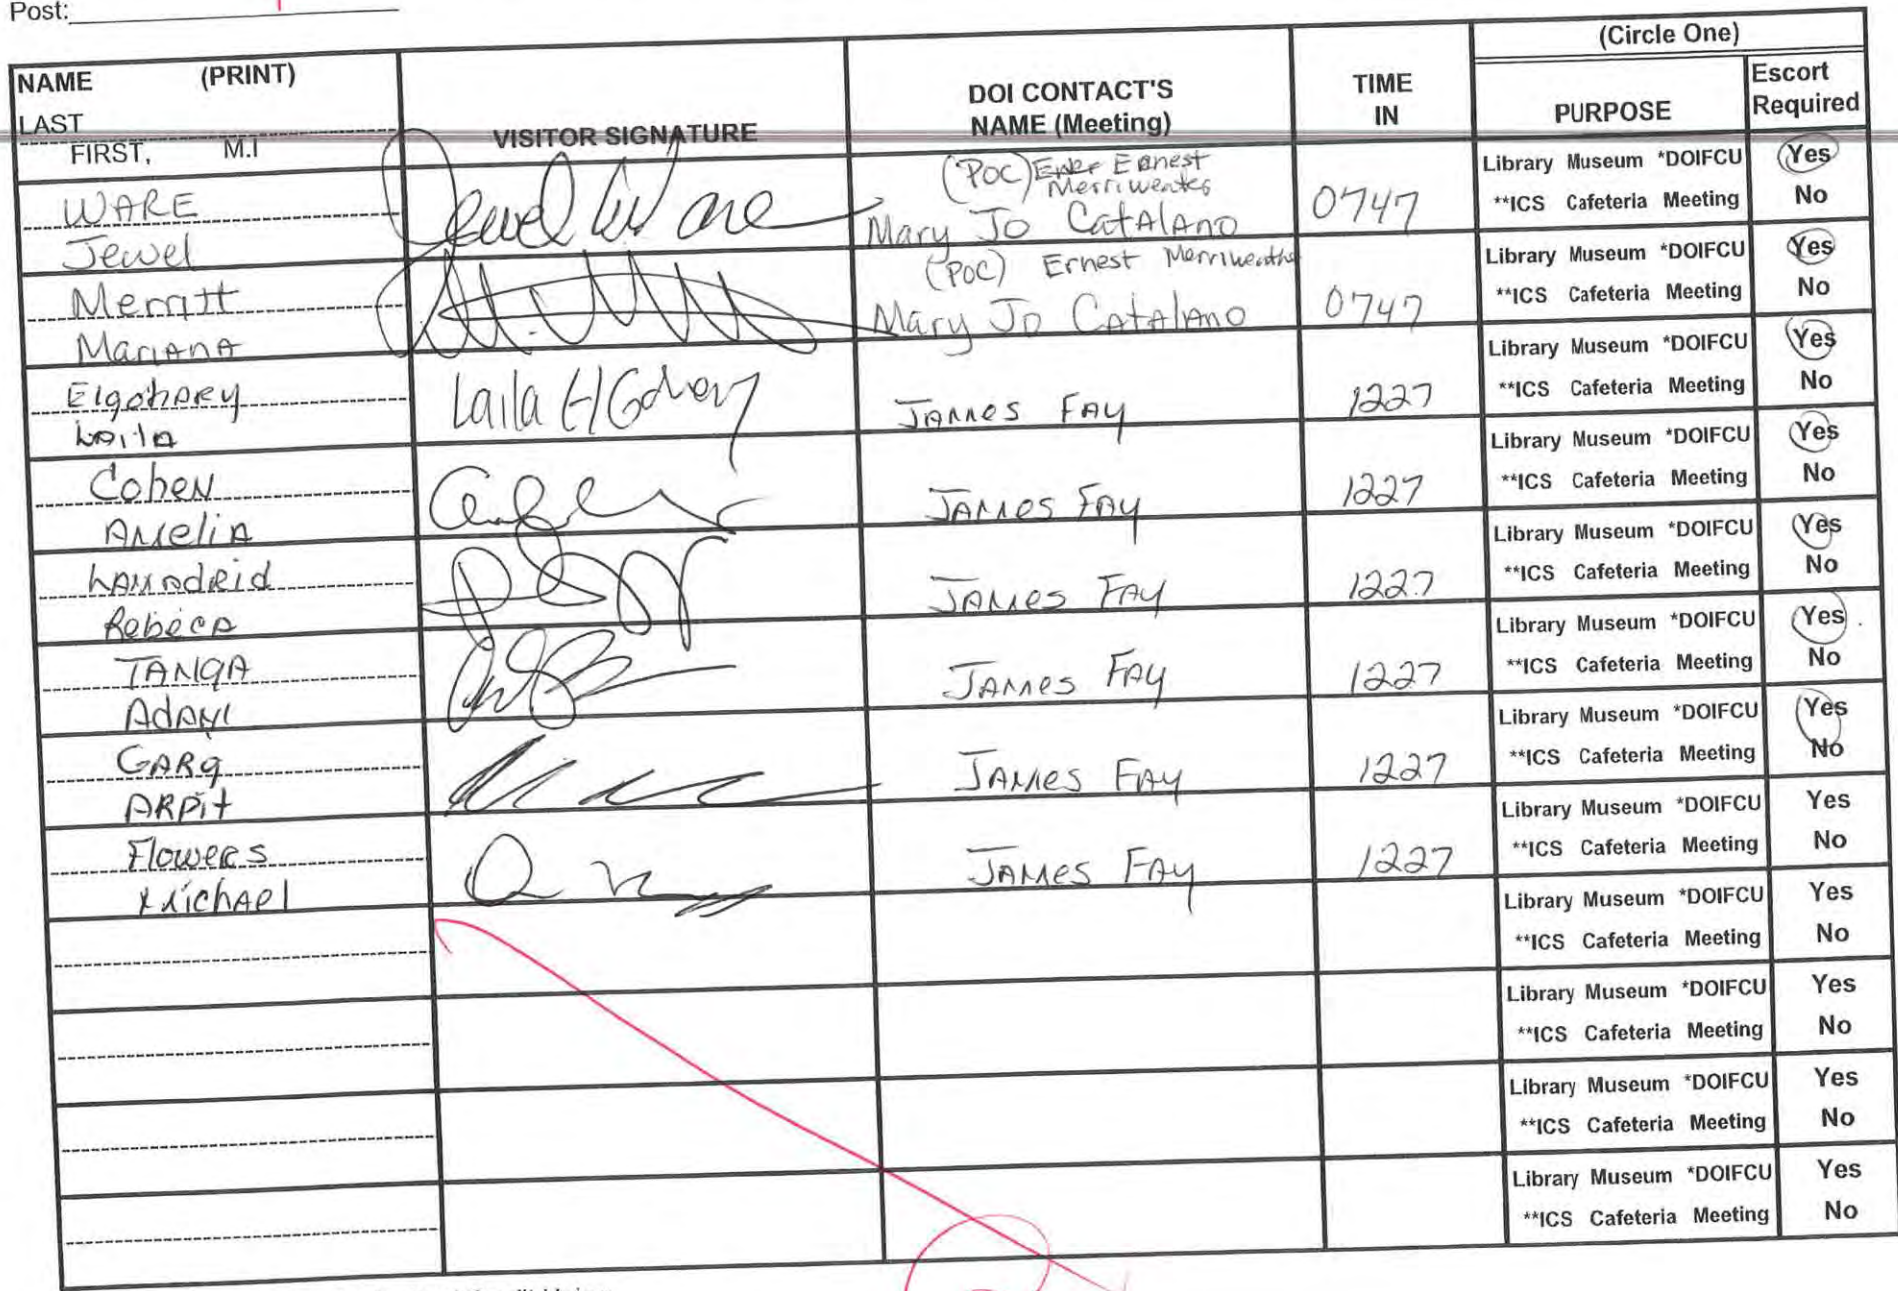 Post:
(Circle One)
NAME (PRINT)
LAST
FIRST, M.I
VISITOR SIGNATURE
DOI CONTACT'S
NAME (Meeting)
TIME
IN
PURPOSE
Escort
Required
WARE
Jewel
Jewel Ware
(POC) Ernest
Merriweather
Mary Jo CatAlANo
0747
Library Museum *DOIFCU Yes
**ICS Cafeteria Meeting No
Merritt
MariANA
(POC) Ernest Merriweather
Mary Jo CatAlANo
0747
Library Museum *DOIFCU Yes
**ICS Cafeteria Meeting No
Elgohary
Laila
Laila ElGohary
JAMes FAy
1227
Library Museum *DOIFCU Yes
**ICS Cafeteria Meeting No
CoheN
AmeliA
JAMes FAy
1227
Library Museum *DOIFCU Yes
**ICS Cafeteria Meeting No
LAmAdRid
RebecA
JAMes FAy
1227
Library Museum *DOIFCU Yes
**ICS Cafeteria Meeting No
TANgA
JAMes FAy
1227
Library Museum *DOIFCU Yes
**ICS Cafeteria Meeting No
GARg
ARPit
JAMes FAy
1227
Library Museum *DOIFCU Yes
**ICS Cafeteria Meeting No
FloweRs
MichAel
JAMes FAy
1227
Library Museum *DOIFCU Yes
**ICS Cafeteria Meeting No
Library Museum *DOIFCU Yes
**ICS Cafeteria Meeting No
Library Museum *DOIFCU Yes
**ICS Cafeteria Meeting No
Library Museum *DOIFCU Yes
**ICS Cafeteria Meeting No
Library Museum *DOIFCU Yes
**ICS Cafeteria Meeting No